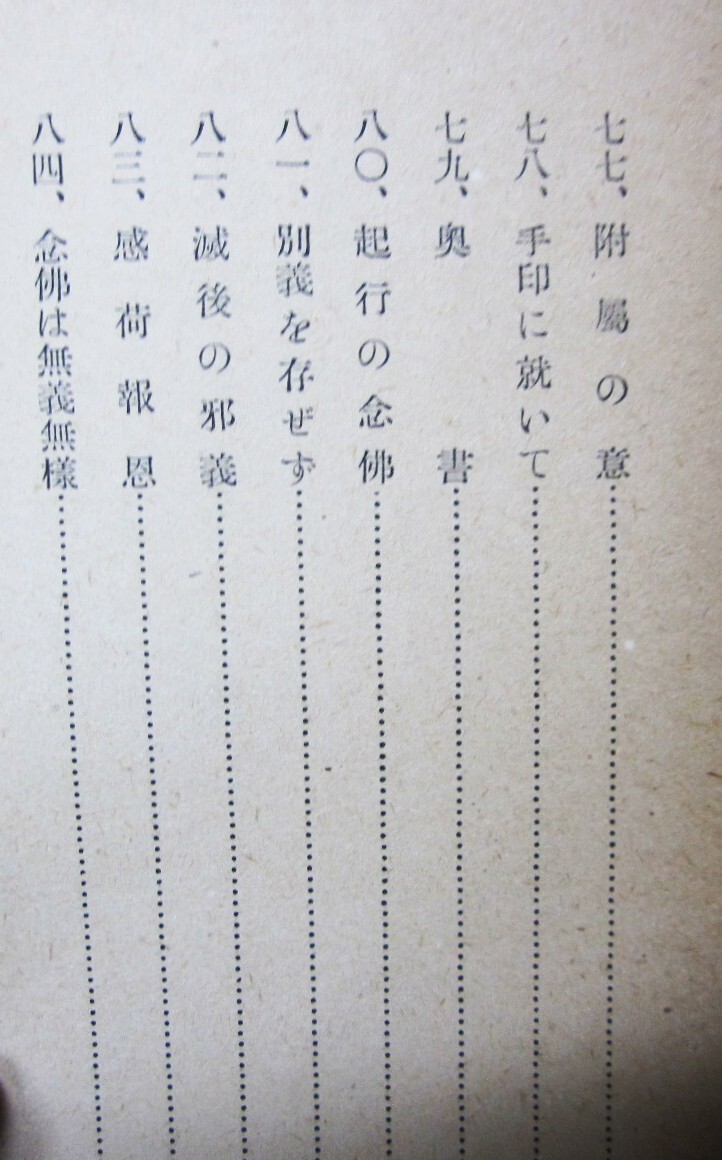 七七、附屬の意
七八、手印に就いて
七九、奥書
八〇、起行の念佛
八一、別義を存ぜず
八二、滅後の邪義
八三、感荷報恩
八四、念佛は無義無樣